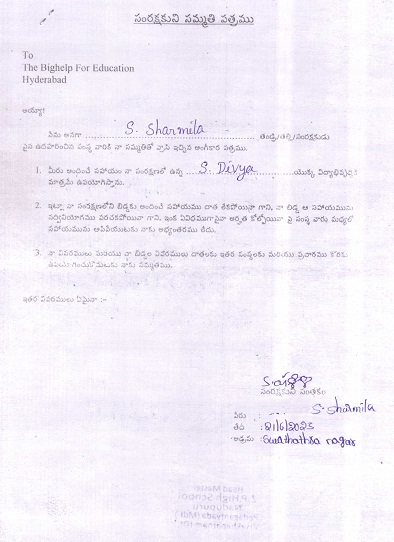 సంరక్షకుని సమ్మతి పత్రము
To
The Bighelp For Education
Hyderabad
అయ్యా!
నేను అనగా S. Sharmila తండ్రి/తల్లి/సంరక్షకుడు
పైన ఉదహరించిన సంస్థ వారికి నా సమ్మతితో వ్రాసి ఇచ్చిన అంగీకార పత్రము.
1. మీరు అందించే సహాయం నా సంరక్షణలో ఉన్న S. Divya యొక్క విద్యాభివృద్ధికి
మాత్రమే ఉపయోగిస్తాను.
2. ఇట్లా నా సంరక్షణలోని బిడ్డకు అందించే సహాయము దాత లేకపోయినా గాని, నా బిడ్డ ఆ సహాయమును
సద్వినియోగము పరచకపోయినా గాని, ఇంక ఏవిధముగానైనా అర్హత కోల్పోయినా పై సంస్థ వారు మధ్యలో
సహాయమును ఆపివేయుటకు నాకు అభ్యంతరము లేదు.
3. నా వివరములు మరియు నా బిడ్డల వివరములు దాతలకు ఇతర సంస్థలకు మరియు ప్రచారము కొరకు
ఉపయోగించుకొనుటకు నాకు సమ్మతము.
ఇతర వివరములు ఏమైనా :-
సంరక్షకుని సంతకం
పేరు : S. Sharmila
తేది : 21/6/2023
అడ్రసు : Swathathra nagar